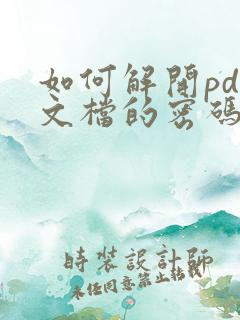 如何解開pd
文檔的密碼
時裝設計師
未经同意禁止転載